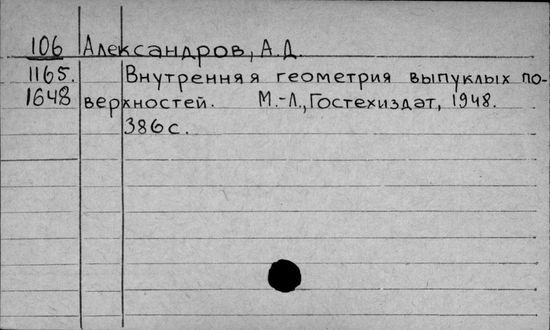 106 Александров, А.Д.
1165. Внутренняя геометрия выпуклых по-
1648 верхностей. М.-Л., Гостехиздат, 1948.
386 с.